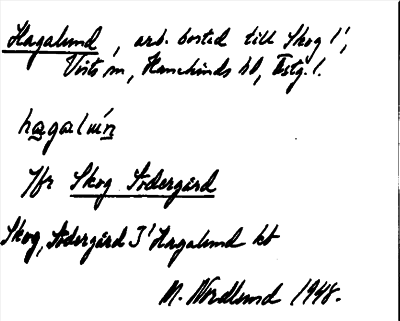 Hagalund, arb. bostad till Skog 1¹,
Vists sn, Hanekinds hd, Östg. l.
hagalun
Jfr Skog Södergård
Skog, Södergård 3¹ Hagalund kb
M. Nordlund 1948.